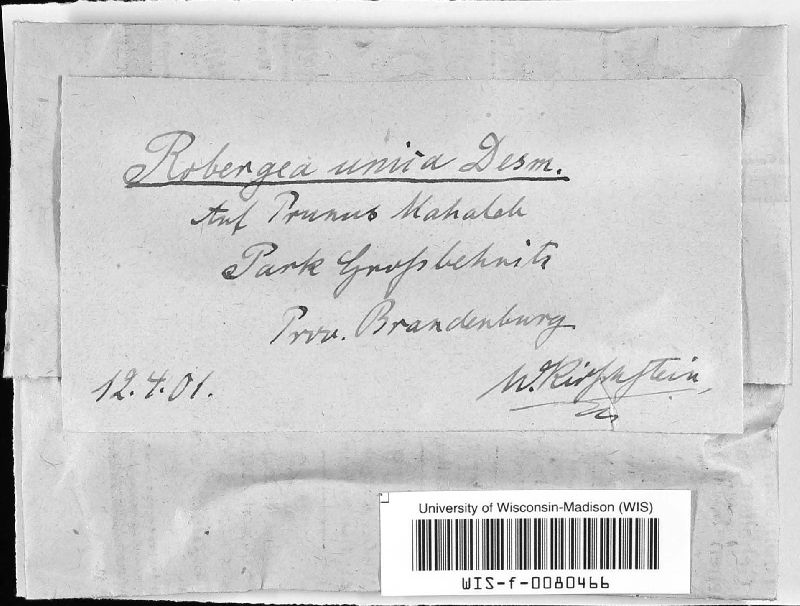 Robergea unica Desm.
Auf Prunus Mahaleb
Park Großbehnitz
Prov. Brandenburg
12.4.01.
W. Kirschstein
University of Wisconsin-Madison (WIS)
WIS-f-0080466